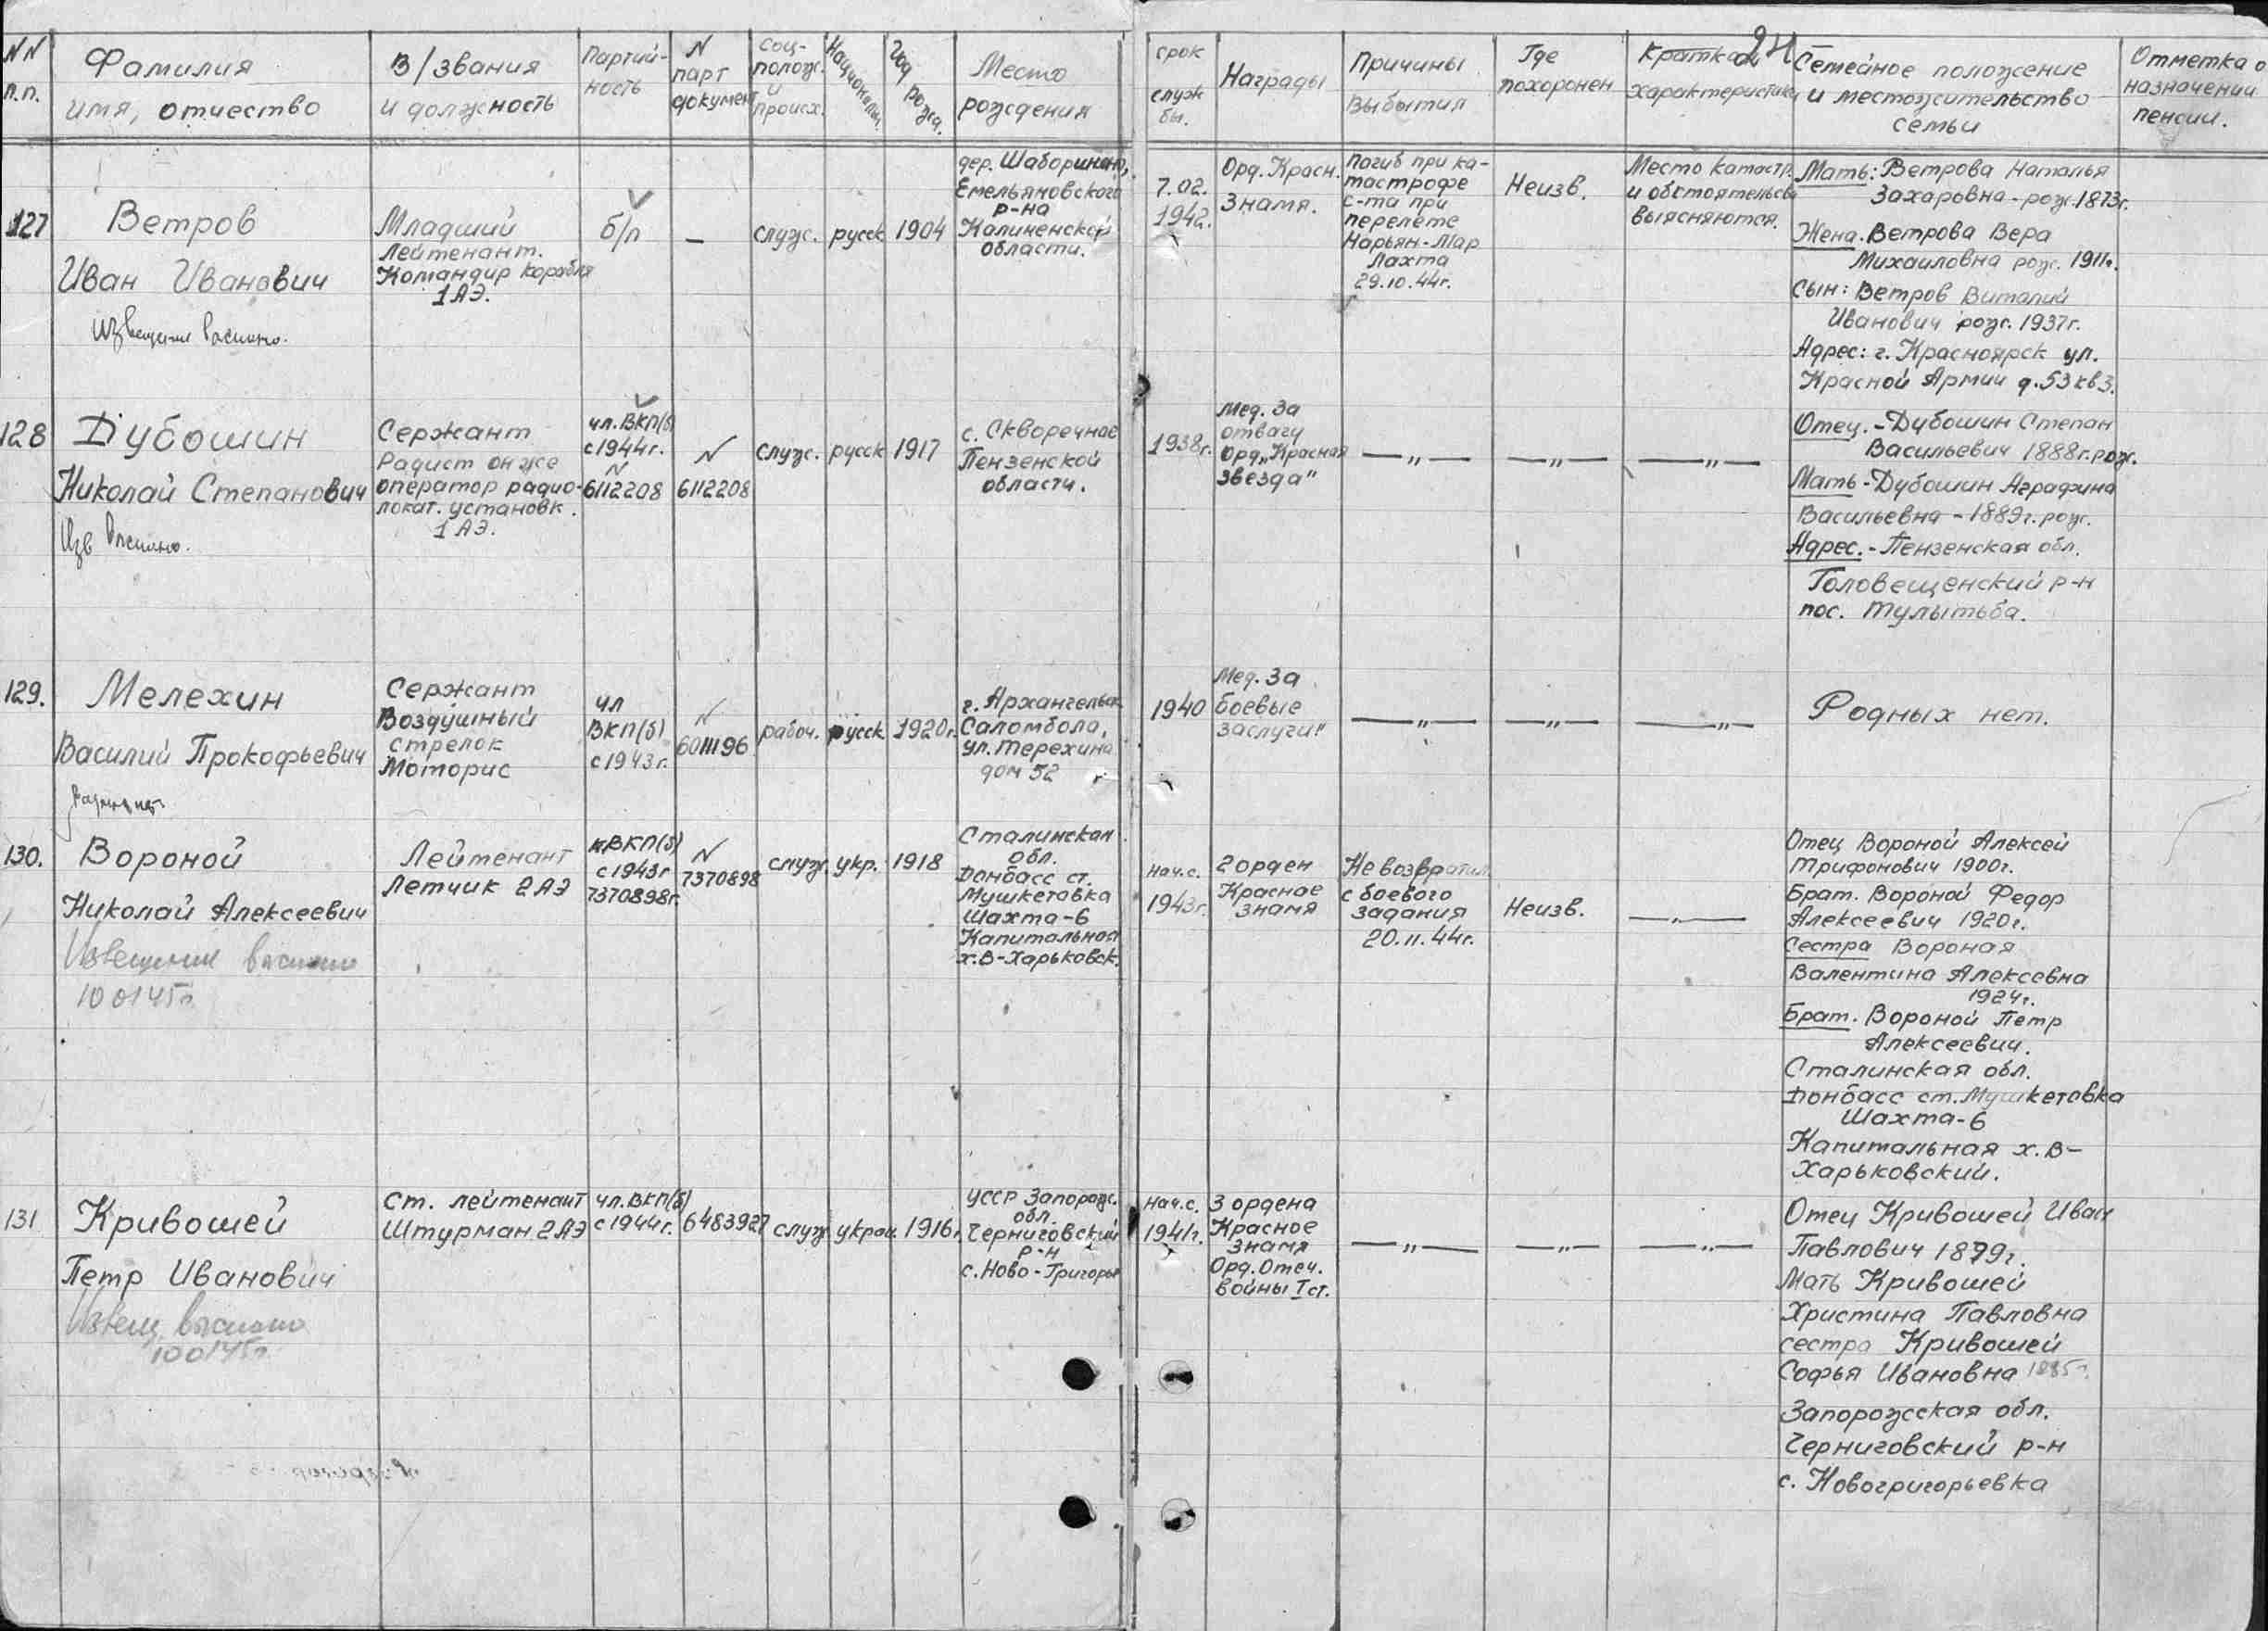 NN п.п.
Фамилия имя, отчество
В/звания и должность
Партийность
N парт документ
Соц-полож. и происх.
Националь.
Год рожд.
Место рождения
срок службы.
Награды
Причины выбытия
Где похоронен
Краткая характеристика
24
Семейное положение и местожительство семьи
Отметка о назначении пенсии.
127
Ветров
Иван Иванович
Извещение выслано.
Младший
Лейтенант.
Командир корабля
1АЭ.
б/п
—
служ.
русск
1904
дер. Шаборинано,
Емельяновского
р-на
Калиненской
области.
7.02.
1942.
Орд. Красн.
Знамя.
Погиб при ка-
тастрофе
с-та при
перелёте
Нарьян-Мар
Лахта
29.10.44г.
Неизв.
Место катастр.
и обстоятельсв
выясняются.
Мать: Ветрова Наталья
Захаровна - рож. 1873г.
Жена. Ветрова Вера
Михаиловна рож. 1911г.
Сын: Ветров Виталий
Иванович рож. 1937г.
Адрес: г. Красноярск ул.
Красной Армии д.53 кв 3.
128
Дубошин
Николай Степанович
Изв выслано.
Сержант
Радист он же
оператор радио-
локат. установк.
1 АЭ.
чл. ВКП(б)
с 1944г.
N
6112208
N
6112208
служ.
русск
1917
с. Скворечное
Пензенской
области.
1938г.
Мед. За
отвагу
Орд „Красная
звезда"
— „ —
— „ —
— „ —
Отец. - Дубошин Степан
Васильевич 1888г. рож.
Мать - Дубошин Аграфина
Васильевна - 1889г. рож.
Адрес. - Пензенская обл.
Головещенский р-н
пос. Тулытьба.
129.
Мелехин
Василий Прокофьевич
Сержант
Воздушный
стрелок
Моторис
чл
ВКП(б)
с 1943г.
N
6011196
рабоч.
русск
1920г.
г. Архангельск
Саломбола,
ул. Терехина
дом 52
1940
Мед. За
боевые
заслуги"
— „ —
— „ —
— „ —
Родных нет.
130.
Вороной
Николай Алексеевич
Извещение выслано
10 01 45г.
Лейтенант
Летчик 2 АЭ
кВКП(б)
с 1943г
7370898г.
N
7370898
служ.
укр.
1918
Сталинская
обл.
Донбасс ст.
Мушкетовка
Шахта-6
Капитальная
х.В-Харьковск.
Нач.с.
1943г.
2 орден
Красное
знамя
Не возвратил
с боевого
задания
20.11.44г.
Неизв.
— „ —
Отец Вороной Алексей
Трифонович 1900г.
Брат. Вороной Федор
Алексеевич 1920г.
Сестра Вороная
Валентина Алексевна
1924г.
Брат. Вороной Петр
Алексеевич.
Сталинская обл.
Донбасс ст. Мушкетовка
Шахта-6
Капитальная х. В-
Харьковский.
131
Кривошей
Петр Иванович
Извещ выслано
10 01 45г.
Ст. лейтенант
Штурман 2АЭ
чл. ВКП(б)
с 1944г.
6483927
служ
украи.
1916г.
УССР Запорож.
обл.
Черниговский
р-н
с. Ново-Григорье
Нач.с.
1941г.
3 ордена
Красное
знамя
Орд. Отеч.
войны I ст.
— „ —
— „ —
— „ —
Отец Кривошей Иван
Павлович 1879г.
Мать Кривошей
Христина Павловна
сестра Кривошей
Софья Ивановна
Запорожская обл.
Черниговский р-н
с. Новогригорьевка